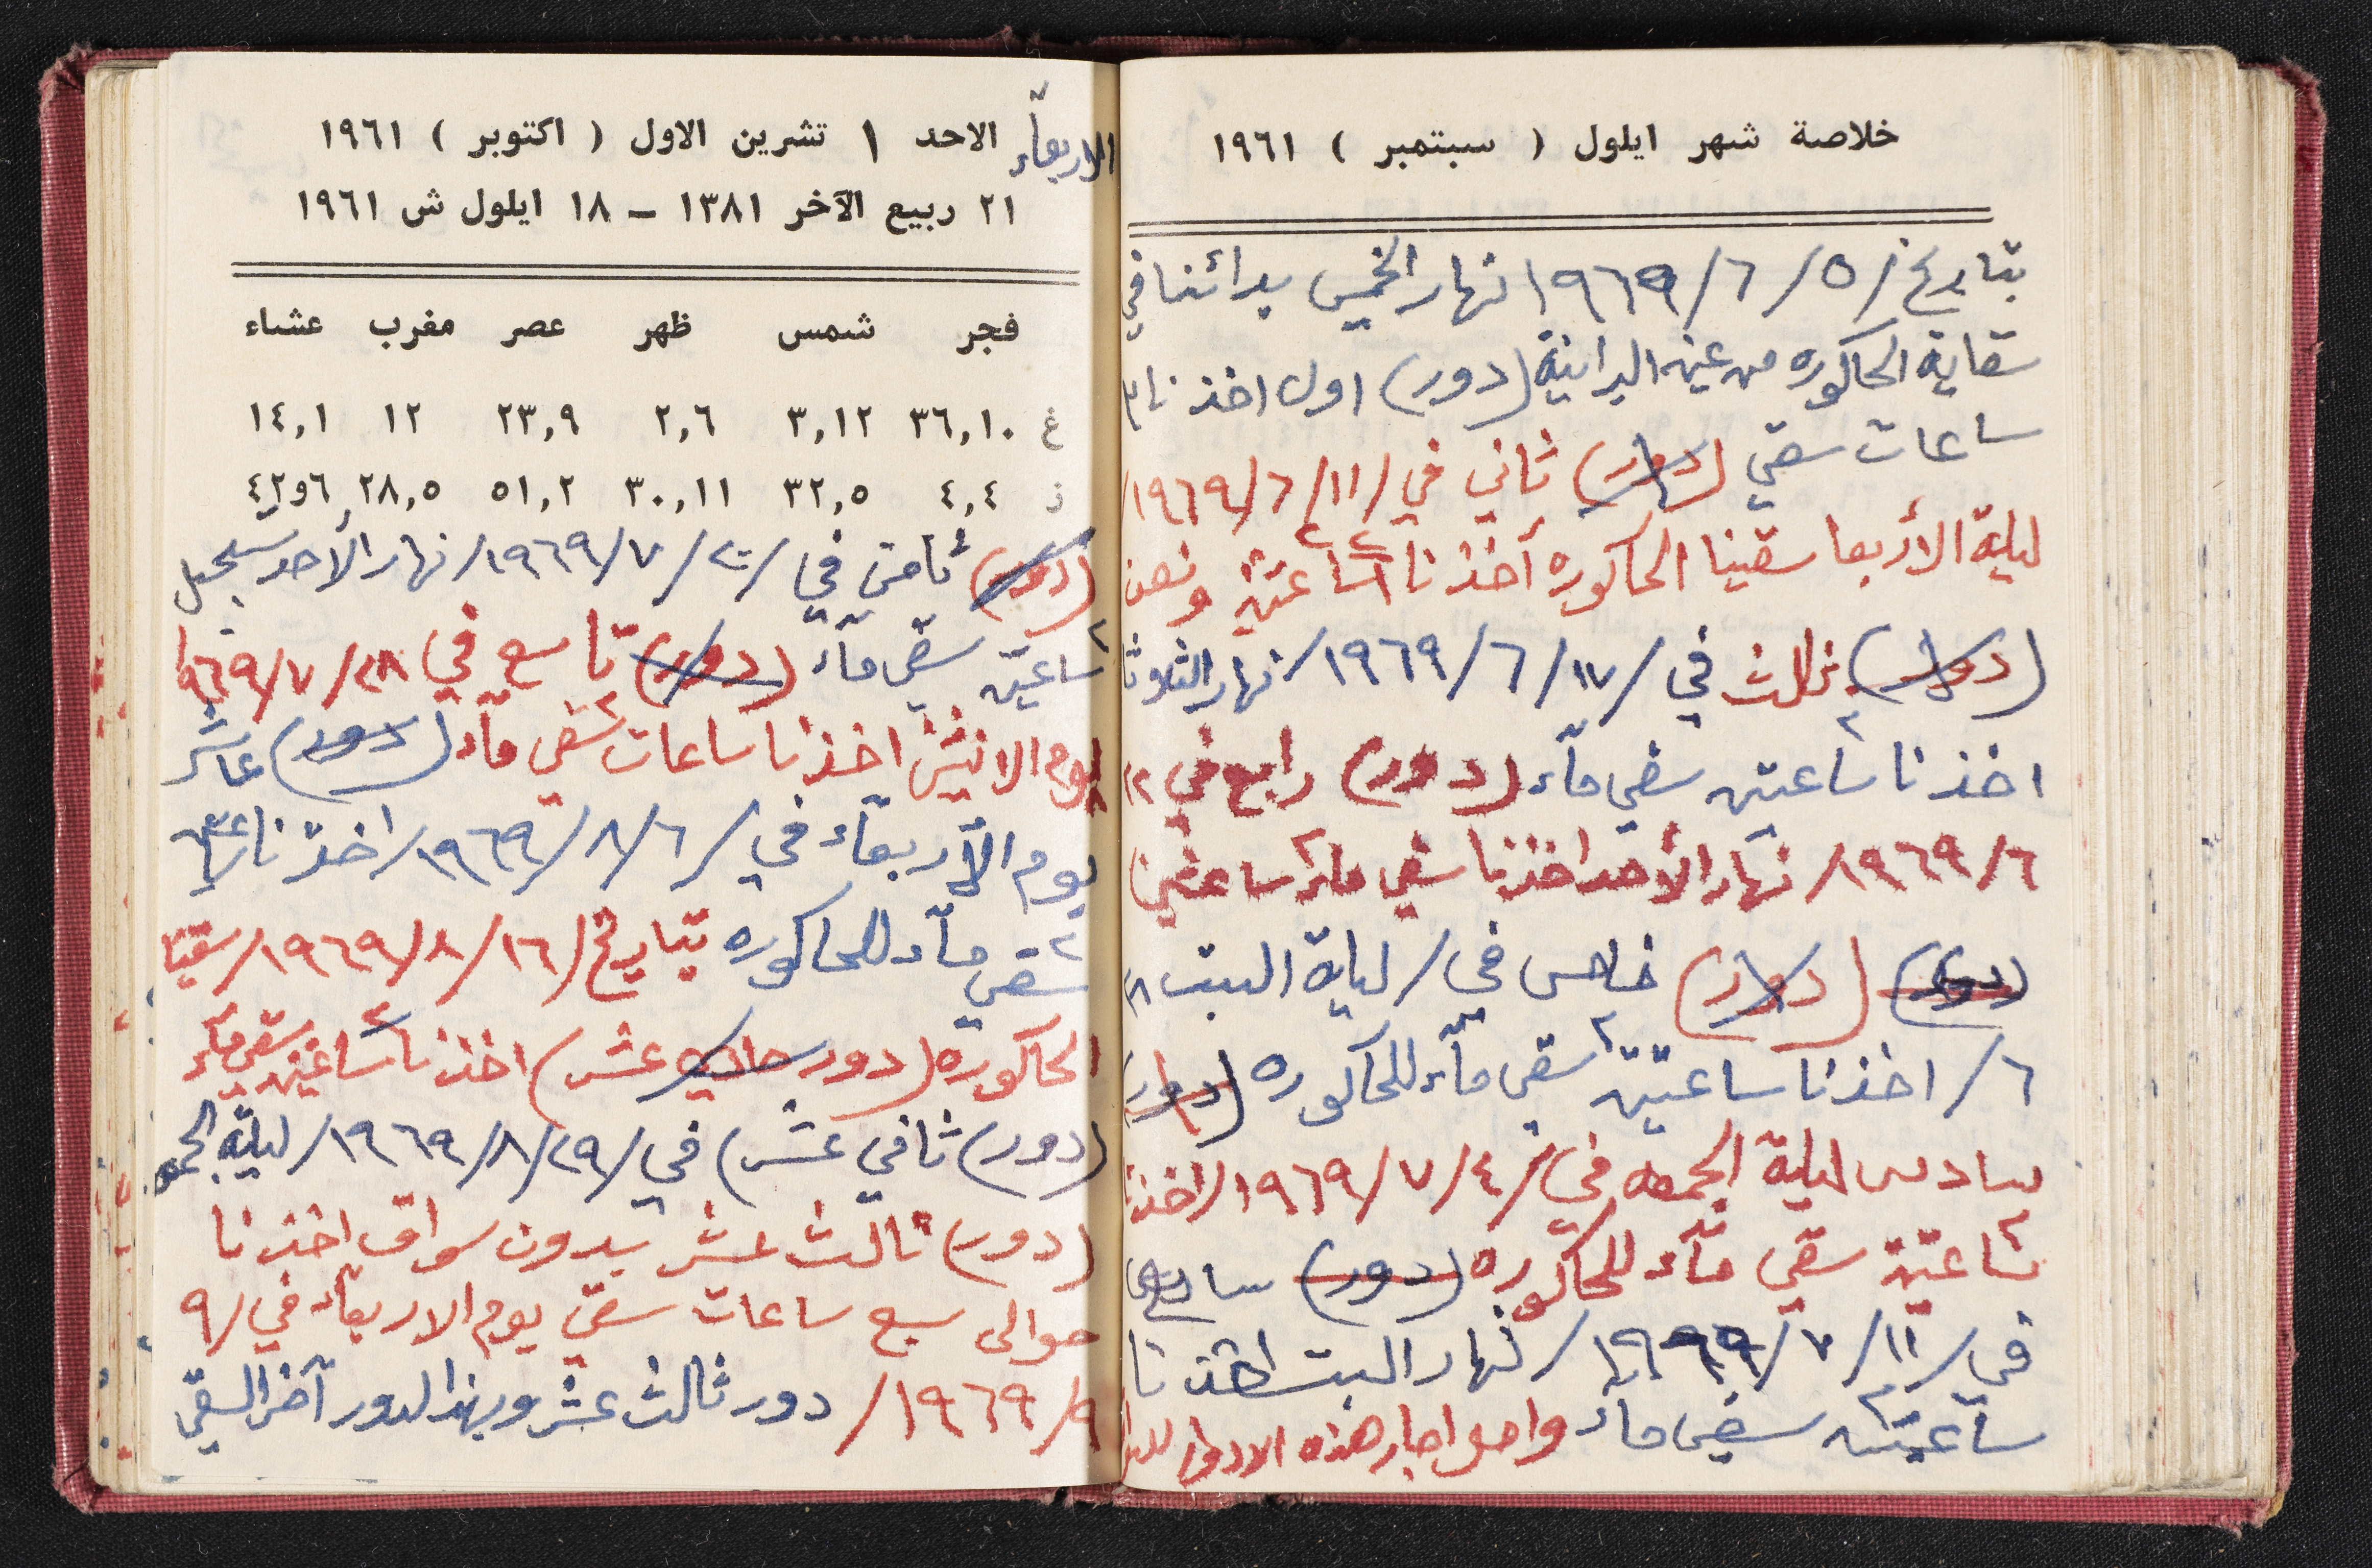 خلاصة شهر ايلول ( سبتمبر ) ١٩٦١
بتاريخ / ٥ / ٦ / ١٩٦٩ نهار الخميس بدائنا في
سقاية الحاكوره من عين البرانية (دور) اول اخذنا ٣
ساعات سقي (دور) ثاني في / ١١ / ٦ / ١٩٦٩ /
ليلة الأربعا سقينا الحاكوره أخذنا ٢ ساعتين ونصف
(دور) ثالث في / ١٧ / ٦ / ١٩٦٩ / نهار الثلاثا
اخذنا ساعتين ٢ سقي مآء (دور) رابع في ٢٢
٦ / ١٩٦٩ / نهار الأحد اخذنا سقي مآء ٢ ساعتين
(دور) (دور) خامس في / ليلة السبت ٢٨
٦ / اخذنا ساعتين ٢ سقي مآء للحاكوره (دور)
سادس ليلة الجمعه في / ٤ / ٧ / ١٩٦٩ / اخذنا
٢ ساعتين سقي مآء للحاكوره (دور) سابع
في / ١١ / ٧ / ١٩٦٩ / نهار السبت اخذنا
ساعتين ٢ سقي مآء واصل اجار هذه الادوار
الاربعآء الاحد ١ تشرين الاول ( اكتوبر ) ١٩٦١
٢١ ربيع الآخر ١٣٨١ – ١٨ ايلول ش ١٩٦١
فجر شمس ظهر عصر مغرب عشاء
غ ٣٦,١٠ ٣,١٢ ٢,٦ ٢٣,٩ ١٢ ١٤,١
ز ٤,٤ ٣٢,٥ ٣٠,١١ ٥١,٢ ٢٨,٥ ٤٢و٦
(دور) ثامن في / ٢٠ / ٧ / ١٩٦٩ / نهار الأحد
٢ ساعتين سقي مآء (دور) تاسع في ٢٨ / ٧ / ١٩٦٩
يوم الاثنين اخذنا ساعات ٢ سقي مآء (دور) عاشر
يوم الأربعآء في / ٦ / ٨ / ١٩٦٩ / اخذنا ساعتين
٢ سقي مآء للحاكوره بتاريخ / ١٦ / ٨ / ١٩٦٩ / سقينا
الحاكوره (دور حادي عشر) اخذنا ٢ ساعتين سقي مآء
(دور) ثاني عشر) في / ٢٩ / ٨ / ١٩٦٩ / ليلة الجمعه
(دور) ثالث عشر بدون سواق اخذنا
حوالى سبع ساعات سقي يوم الاربعآء في / ٩
٩ / ١٩٦٩ / دور ثالث عشر وبهذا الدور آخر السقي